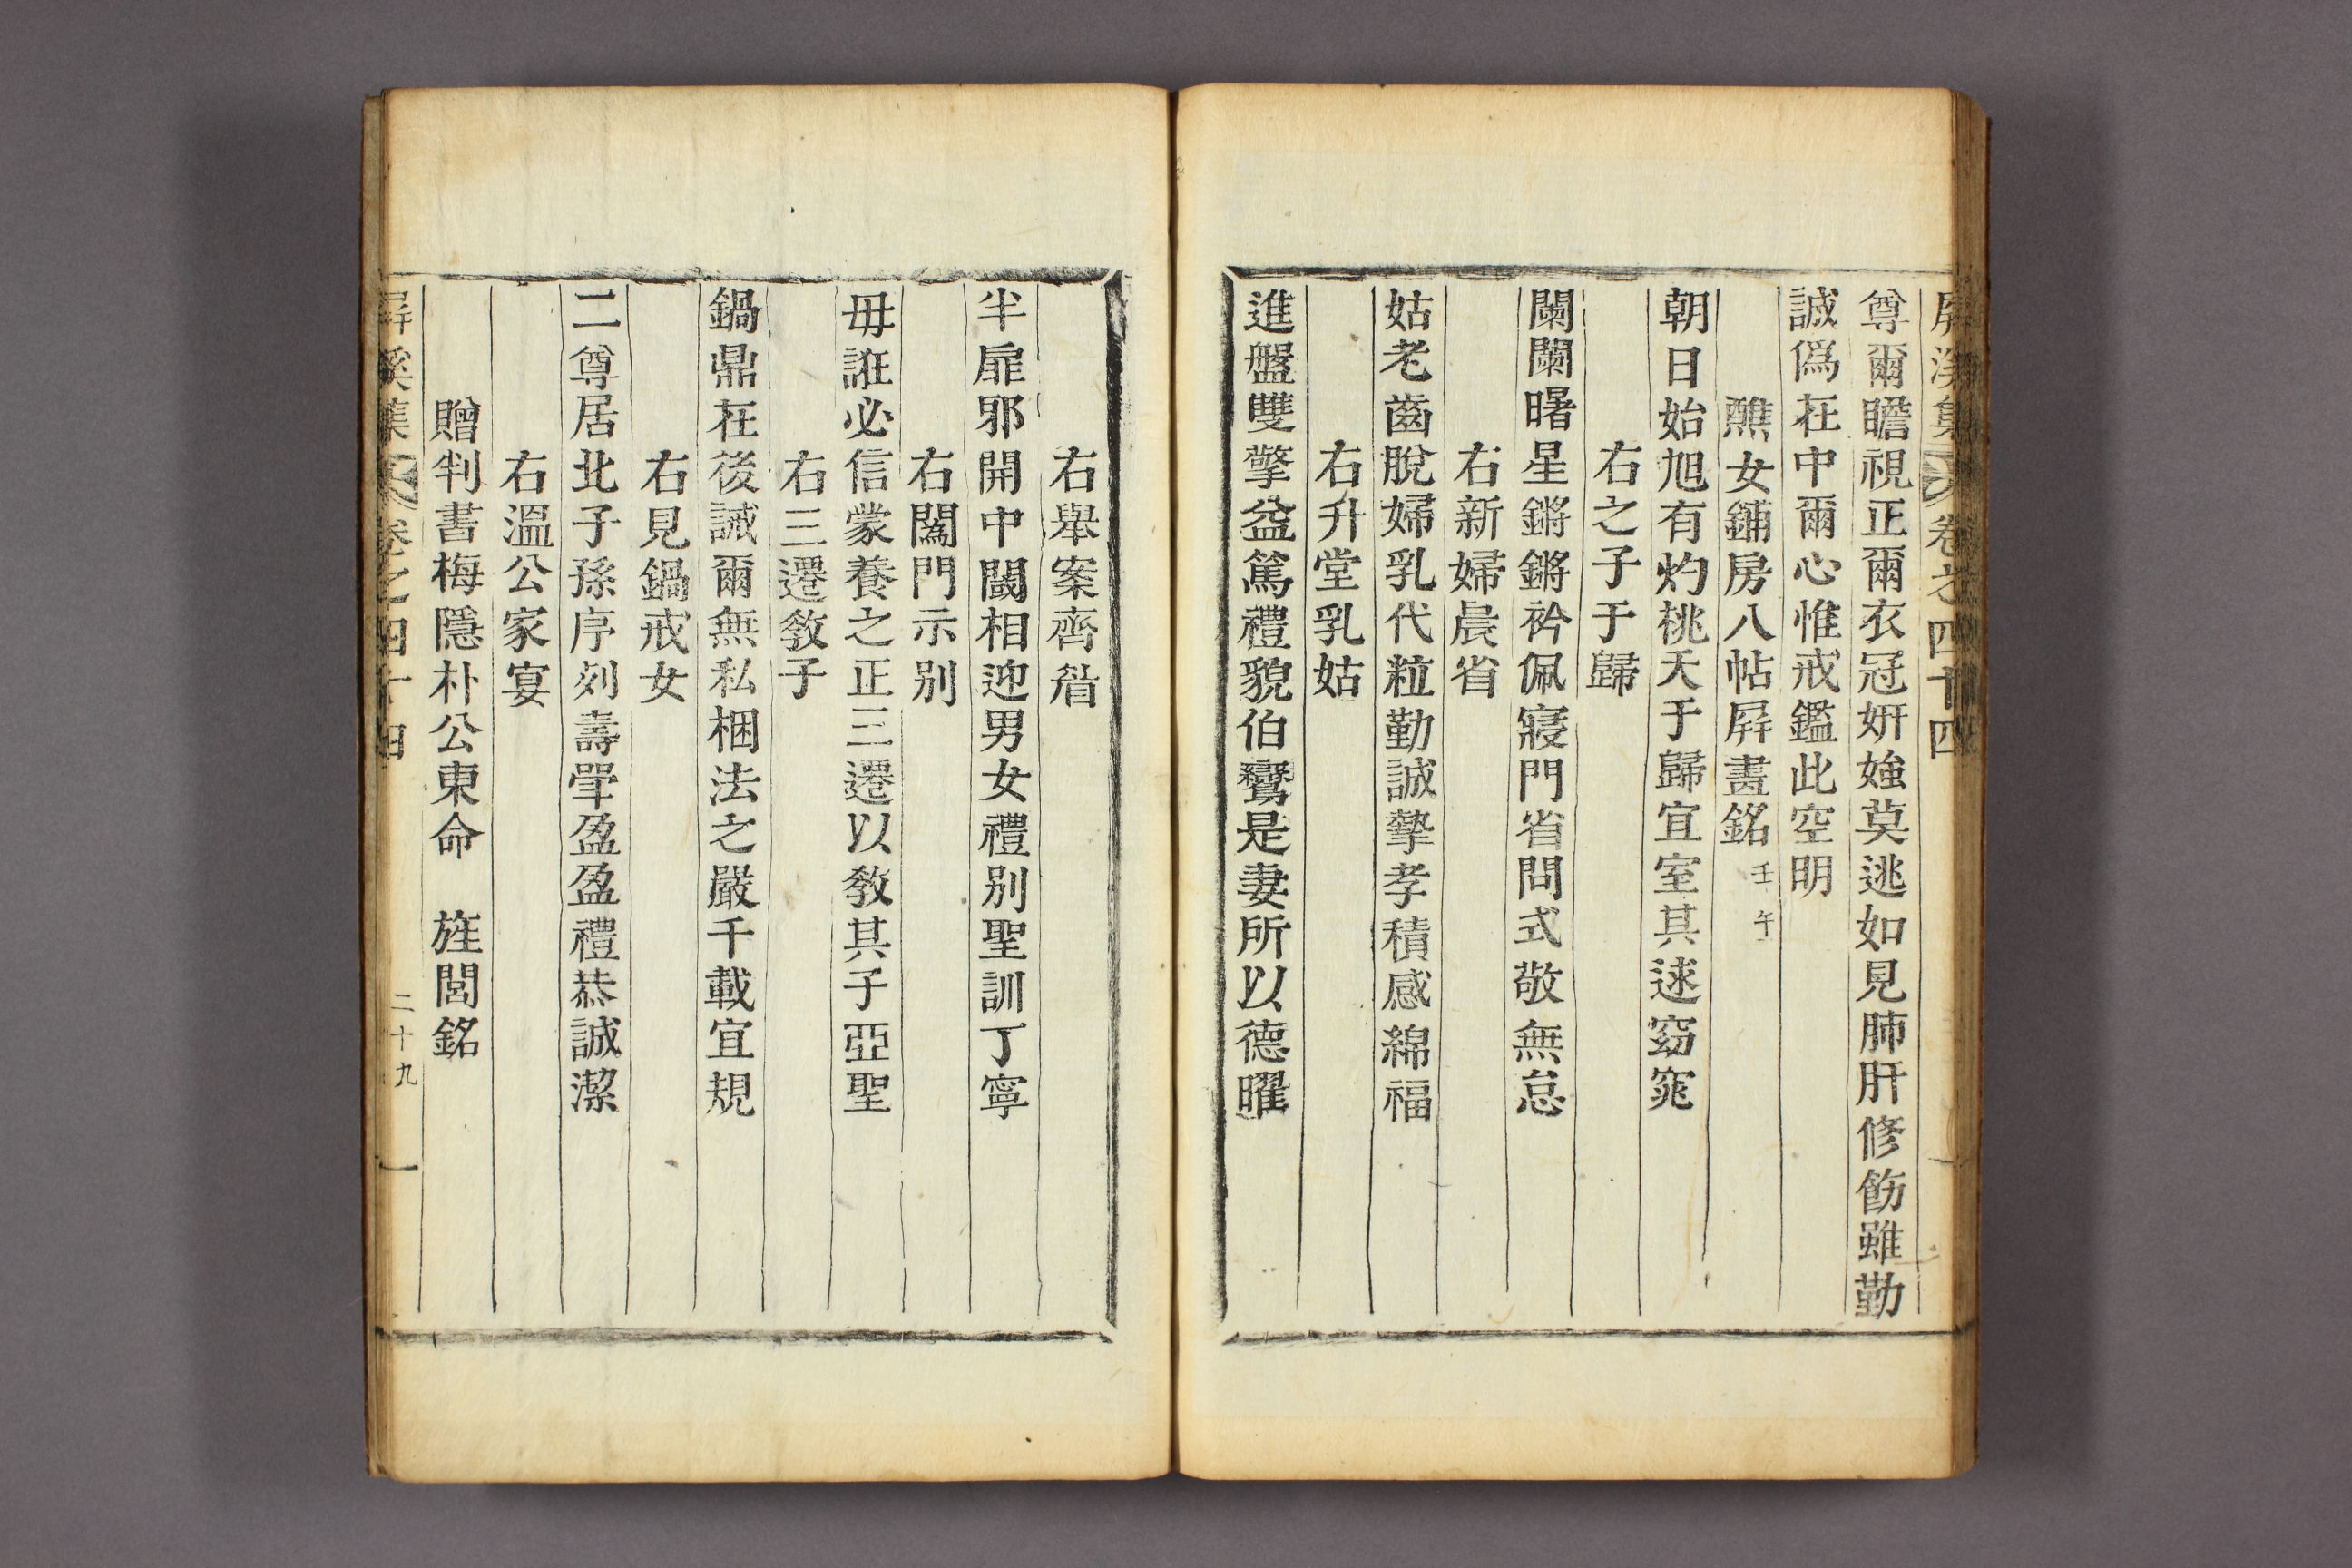 屛溪集 卷之四十四
尊爾瞻視正爾衣冠姸媸莫逃如見肺肝修飭雖勤
誠僞在中爾心惟戒鑑此空明
醮女鋪房八帖屛畫銘 壬午
朝日始旭有灼桃夭于歸宜室其逑窈窕
右之子于歸
闌闌曙星鏘鏘衿佩寢門省問式敬無怠
右新婦晨省
姑老齒脫婦乳代粒勤誠摯孝積感綿福
右升堂乳姑
進盤雙擎益篤禮貌伯鸞是妻所以德曜
右舉案齊眉
半扉邪開中閾相迎男女禮別聖訓丁寧
右闔門示別
毋誑必信蒙養之正三遷以敎其子亞聖
右三遷敎子
鍋鼎在後誡爾無私梱法之嚴千載宜規
右見鍋戒女
二尊居北子孫序列壽斝盈盈禮恭誠潔
右溫公家宴
贈判書梅隱朴公東命 旌閭銘
屛溪集 卷之四十四 二十九